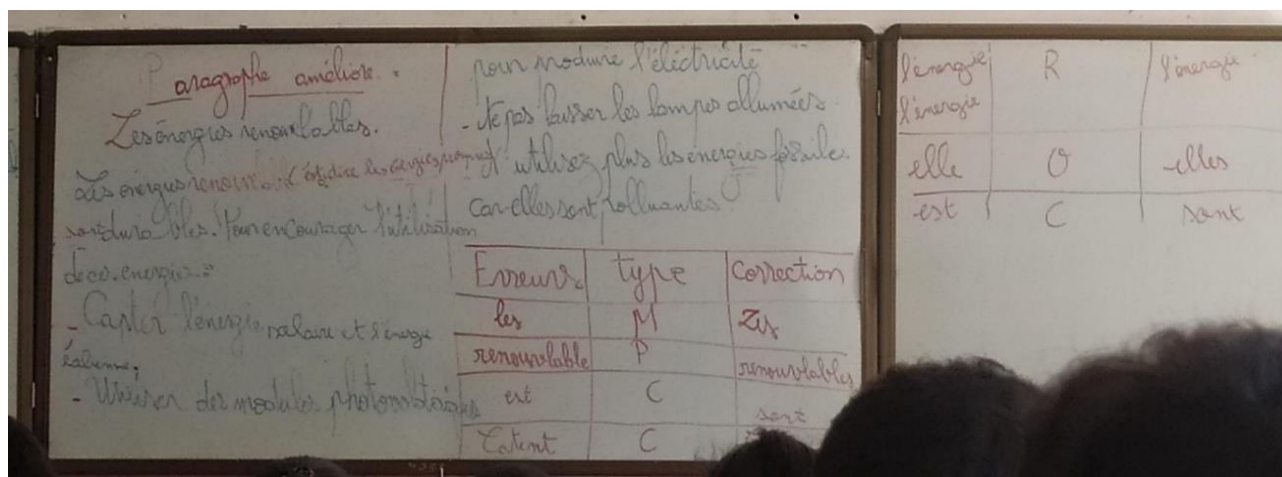 Paragraphe amélioré.
Les énergies renouvlables.
Les énergies renouv... C'est dire les énergies
sont durables. Pour encourager l'utilisation
de ces énergies :
- Capter l'énergie solaire et l'énergie
éolienne.
- Utiliser des modules photovoltaïques
pour produire l'éléctricité
- Ne pas laisser les lampes allumées
N'utilisez plus les énergies fossiles
car elles sont polluantes.
Erreurs type Correction
les M Les
renouvlable P renouvlables
est C sont
C
l'énergie R l'énergie
l'énergie
elle O elles
est C sont